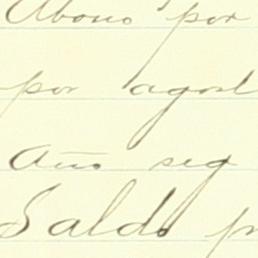 Abono por
por agost
Año seg
Saldo p